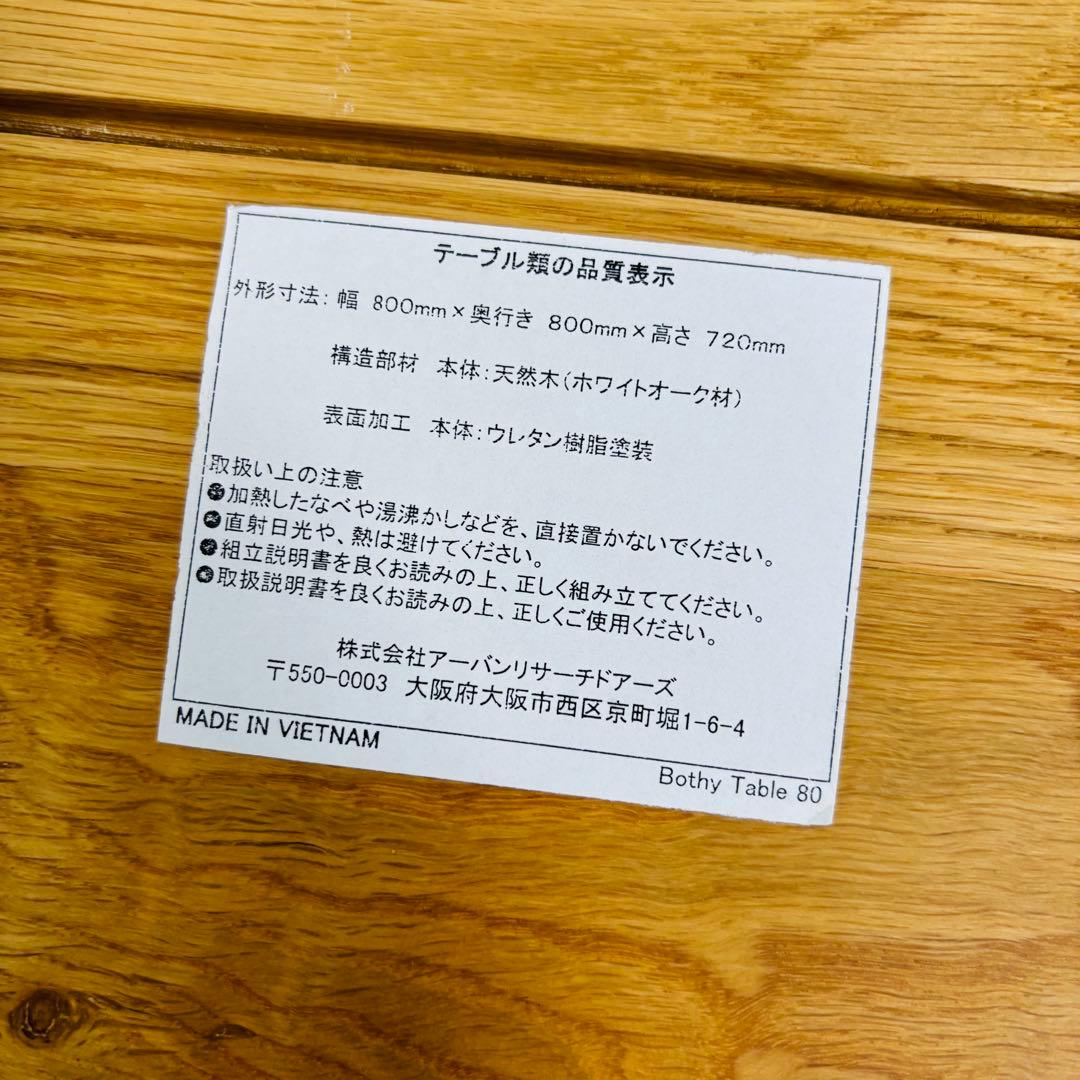 テーブル類の品質表示
外形寸法: 幅 800mm×奥行き 800mm×高さ 720mm
構造部材 本体:天然木(ホワイトオーク材)
表面加工 本体:ウレタン樹脂塗装
取扱い上の注意
●加熱したなべや湯沸かしなどを、直接置かないでください。
●直射日光や、熱は避けてください。
●組立説明書を良くお読みの上、正しく組み立ててください。
●取扱説明書を良くお読みの上、正しくご使用ください。
株式会社アーバンリサーチドアーズ
〒550-0003 大阪府大阪市西区京町堀1-6-4
MADE IN VIETNAM
Bothy Table 80